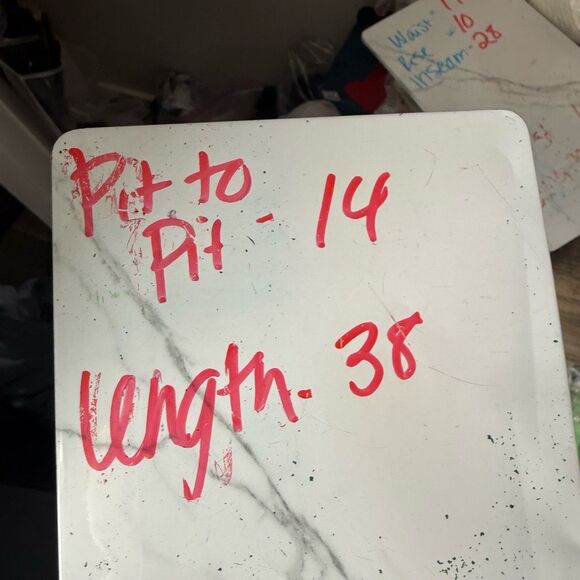 Pit to
Pit - 14
length. 38
Waist -
Rise - 10
Inseam - 28